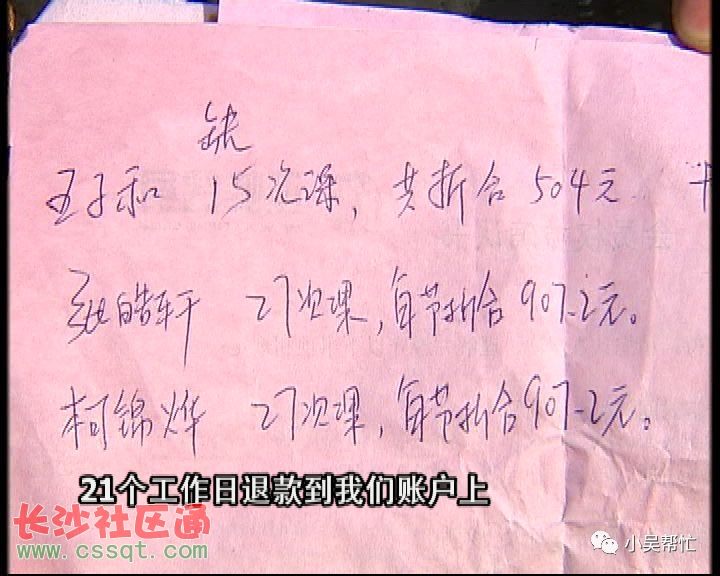 缺
王子和 15次课, 共折合504元.
张皓轩 27次课, 每节折合907.2元。
柯锦烨 27次课, 每节折合907.2元。
21个工作日退款到我们账户上
长沙社区通
www.cssqt.com
小吴帮忙